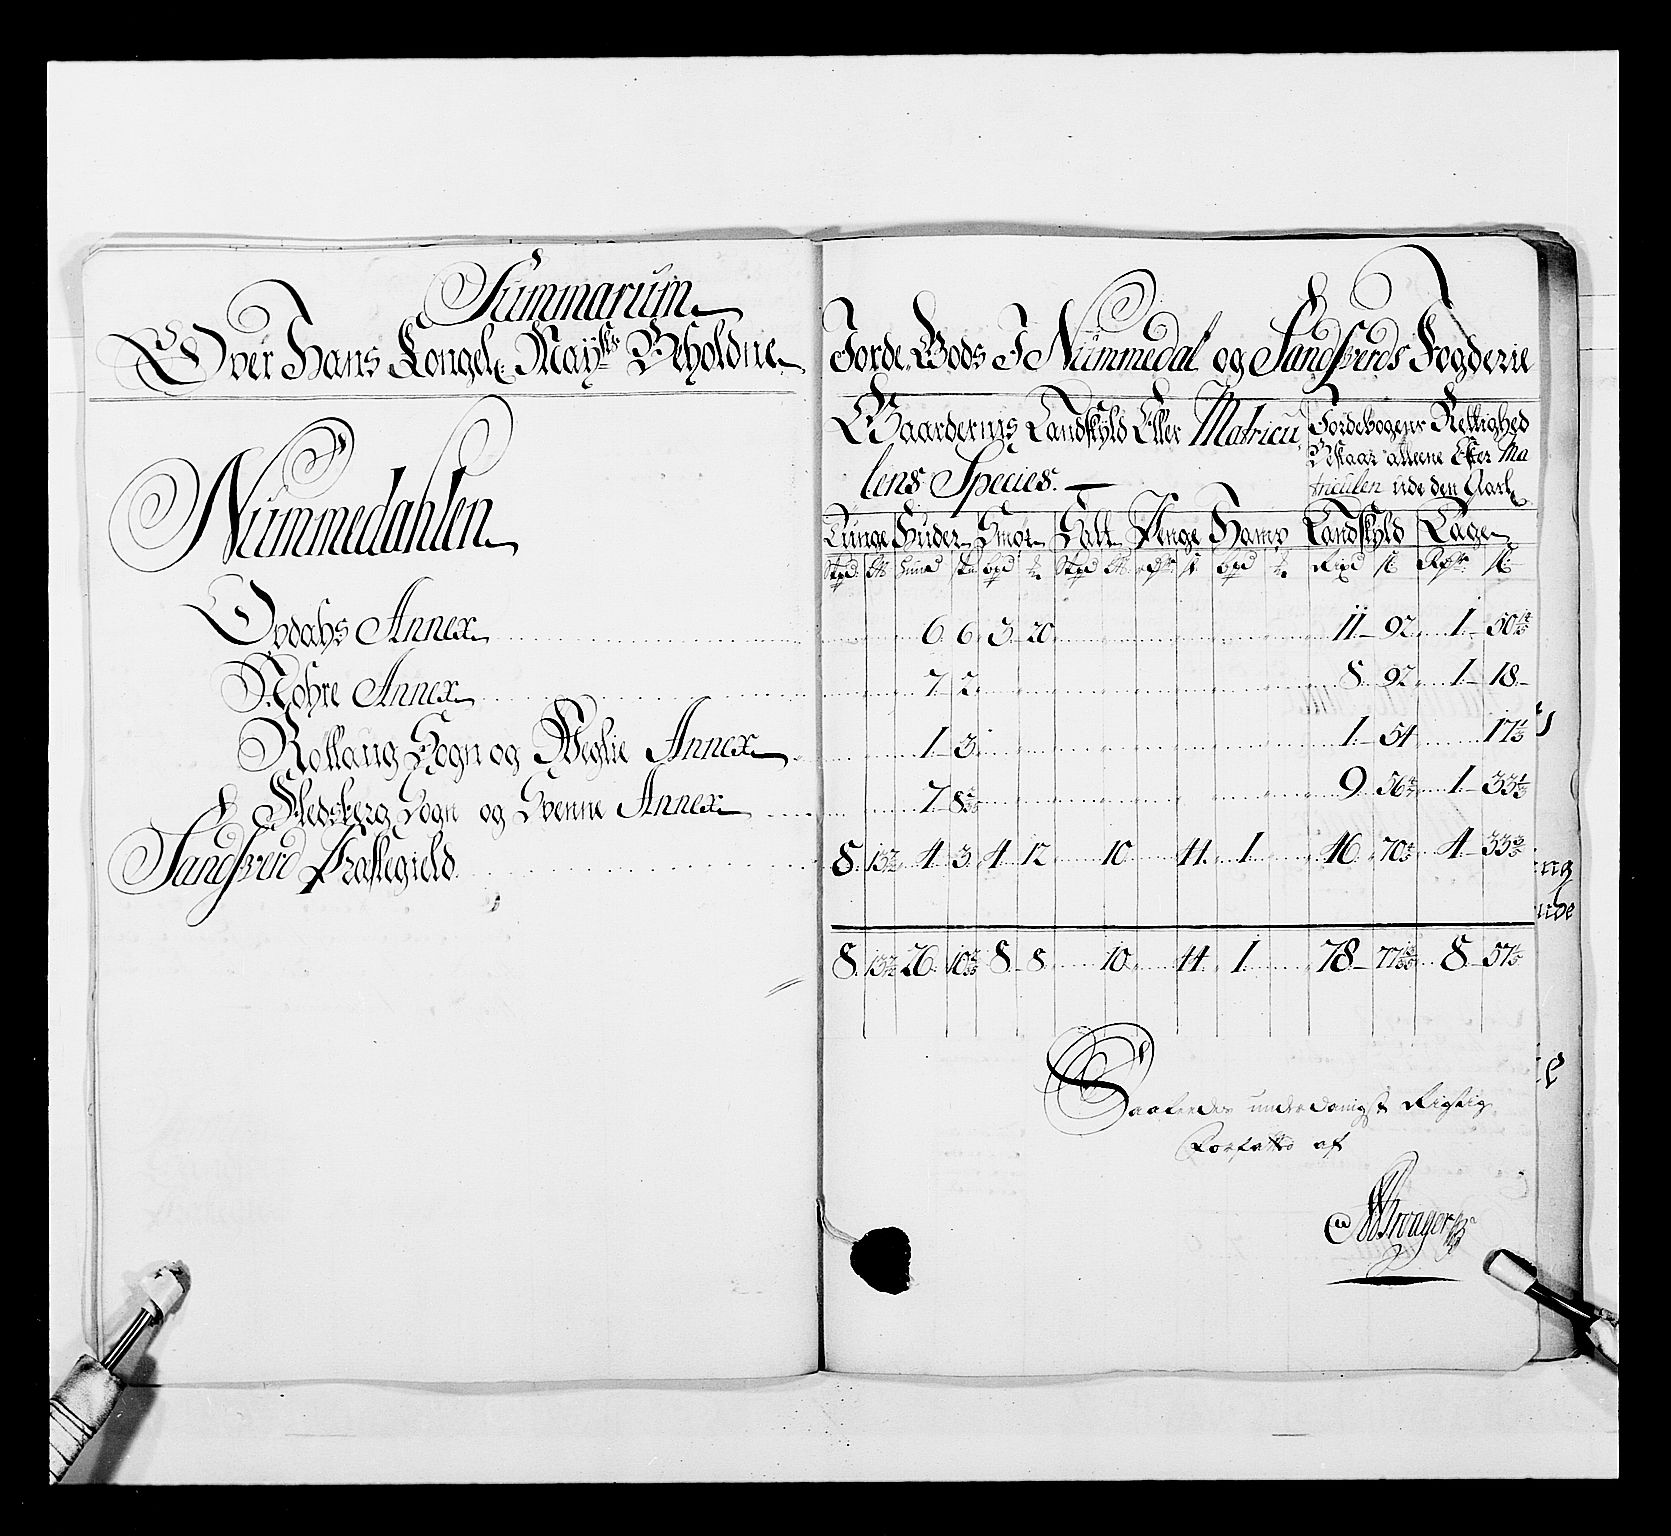 Summarum
Over Hans Kongel: May:ts Beholdne
Jorde Gods I Nummedal og Sandsverds Fogderie
Nummedahlen
Gaardernis Landskyld Eller Matricu
lens Species.
Jordebogens Rettighed
alleene Efter Ma
triculen ude den Aarl:
Tunge Huder Smør Salt Penge Hamp Landskyld Tage
Opdahs Annex 6 6 3 20 11 92 1 50
Nohre Annex 7 2 8 92 1 18
Rollaug Sogn og Weglie Annex 1 3 1 54 17
Fledsberg Sogn og Svenne Annex 7 8 9 56 1 33
Sandsverd Præstegield 8 13 4 3 4 12 10 44 1 46 70 4 33
8 13 26 10 8 8 10 44 1 78 77 8 57
Saaledes underdanigst Rigtig
Forfatted af